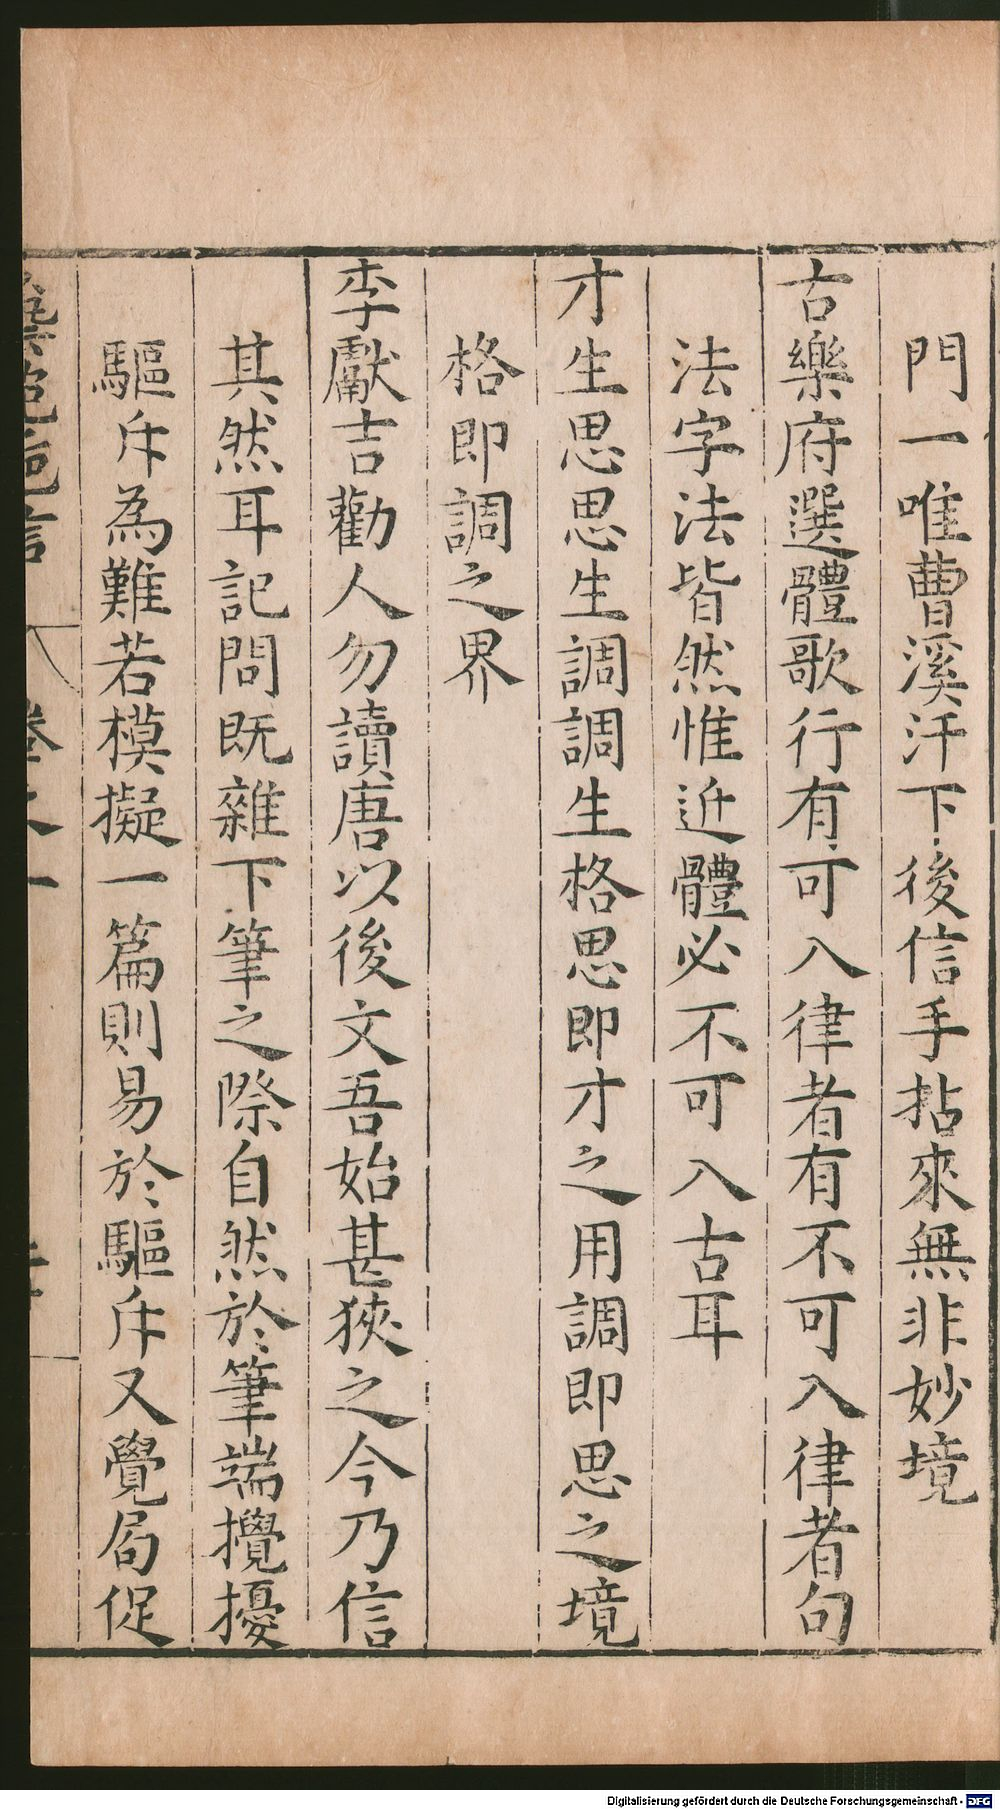 門一唯曹溪汗下後信手拈來無非妙境
古樂府選體歌行有可入律者有不可入律者句
法字法皆然惟近體必不可入古耳
才生思思生調調生格思即才之用調即思之境
格即調之界
李獻吉勸人勿讀唐以後文吾始甚狹之今乃信
其然耳記問既雜下筆之際自然於筆端攪擾
驅斥為難若模擬一篇則易於驅斥又覺局促
藝苑巵言 卷之一
Digitalisierung gefördert durch die Deutsche Forschungsgemeinschaft - DFG